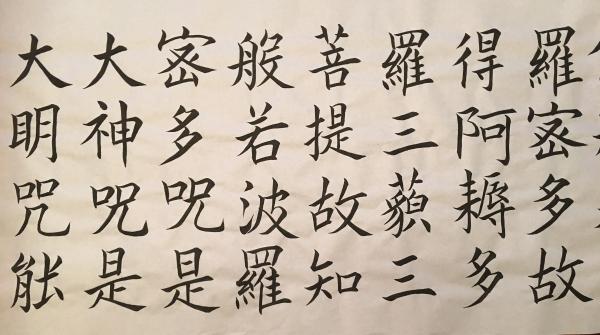 羅密多故
得阿耨多
羅三藐三
菩提故知
般若波羅
密多咒是
大神咒是
大明咒能